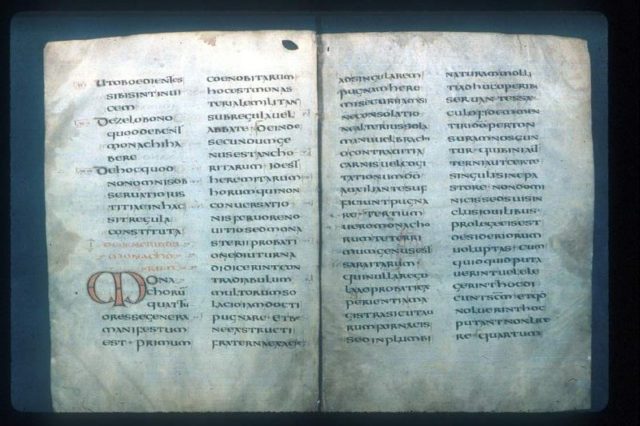 UTOBOEDIENTES
SIBISINTINUI
CEM
DEZELOBONO
QUODDEBENT
MONACHIHA
BERE
DEHOCQUOD
NONOMNISOB
SERUATIOIUS
TITIAEINHAC
SITREGULA
CONSTITUTA
DEGENERIBUS
MONACHO
RUM
MONA
CHORU
QUATTU
ORESSEGENERA
MANIFESTUM
EST · PRIMUM
COENOBITARUM
HOCESTMONAS
TERIALEMILITAN
SUBREGULAUEL
ABBATE · DEINDE
SECUNDUMGE
NUSESTANCHO
RITARUM IDEST
HEREMITARUM
HORUMQUINON
CONUERSATIO
NISFERUORENO
UITIOSEDMONA
STERIIPROBATI
ONEDIUTURNA
DIDICERINTCON
TRADIABULUM
MULTORUMSO
LACIOIAMDOCTI
PUGNARE · ETBE
NEEXSTRUCTI
FRATERNAEXACIE
ADSINGULAREM
PUGNAMHERE
MISECURIIAMSI
NECONSOLATIO
NEALTERIUSSOLA
MANUUELBRACHI
OCONTRAUITIA
CARNISUELCOGI
TATIONUMDO
AUXILIANTESUF
FICIUNTPUGNA
RE · TERTIUM
UEROMONACHO
RUMTETERRI
MUMGENUSEST
SARAITARUM
QUINULLAREGU
LAADPROBATIEX
PERIENTIAMA
GISTRASICUTAU
RUMFORNACIS
SEDINPLUMBI
NATURAMOLLI
TIADHUCOPERIB
SERUANTESSAE
CULOFIDEMMEN
TIRIDOPERTON
SURAMNOSCUN
TUR · QUIBINIAUT
TERNIAUTCERTE
SINGULISINEPA
STORE · NONDOMI
NICISSEDSUISIN
CLUSIOUILIBUS
PROLEGEEISEST
DESIDERIORUM
UOLUPTAS · CUM
QUIDQUIDPUTA
UERINTUELELE
GERINTHOCDI
CUNTSCMETQD
NOLUERINTHOC
PUTANTNONLICE
RE · QUARTUM